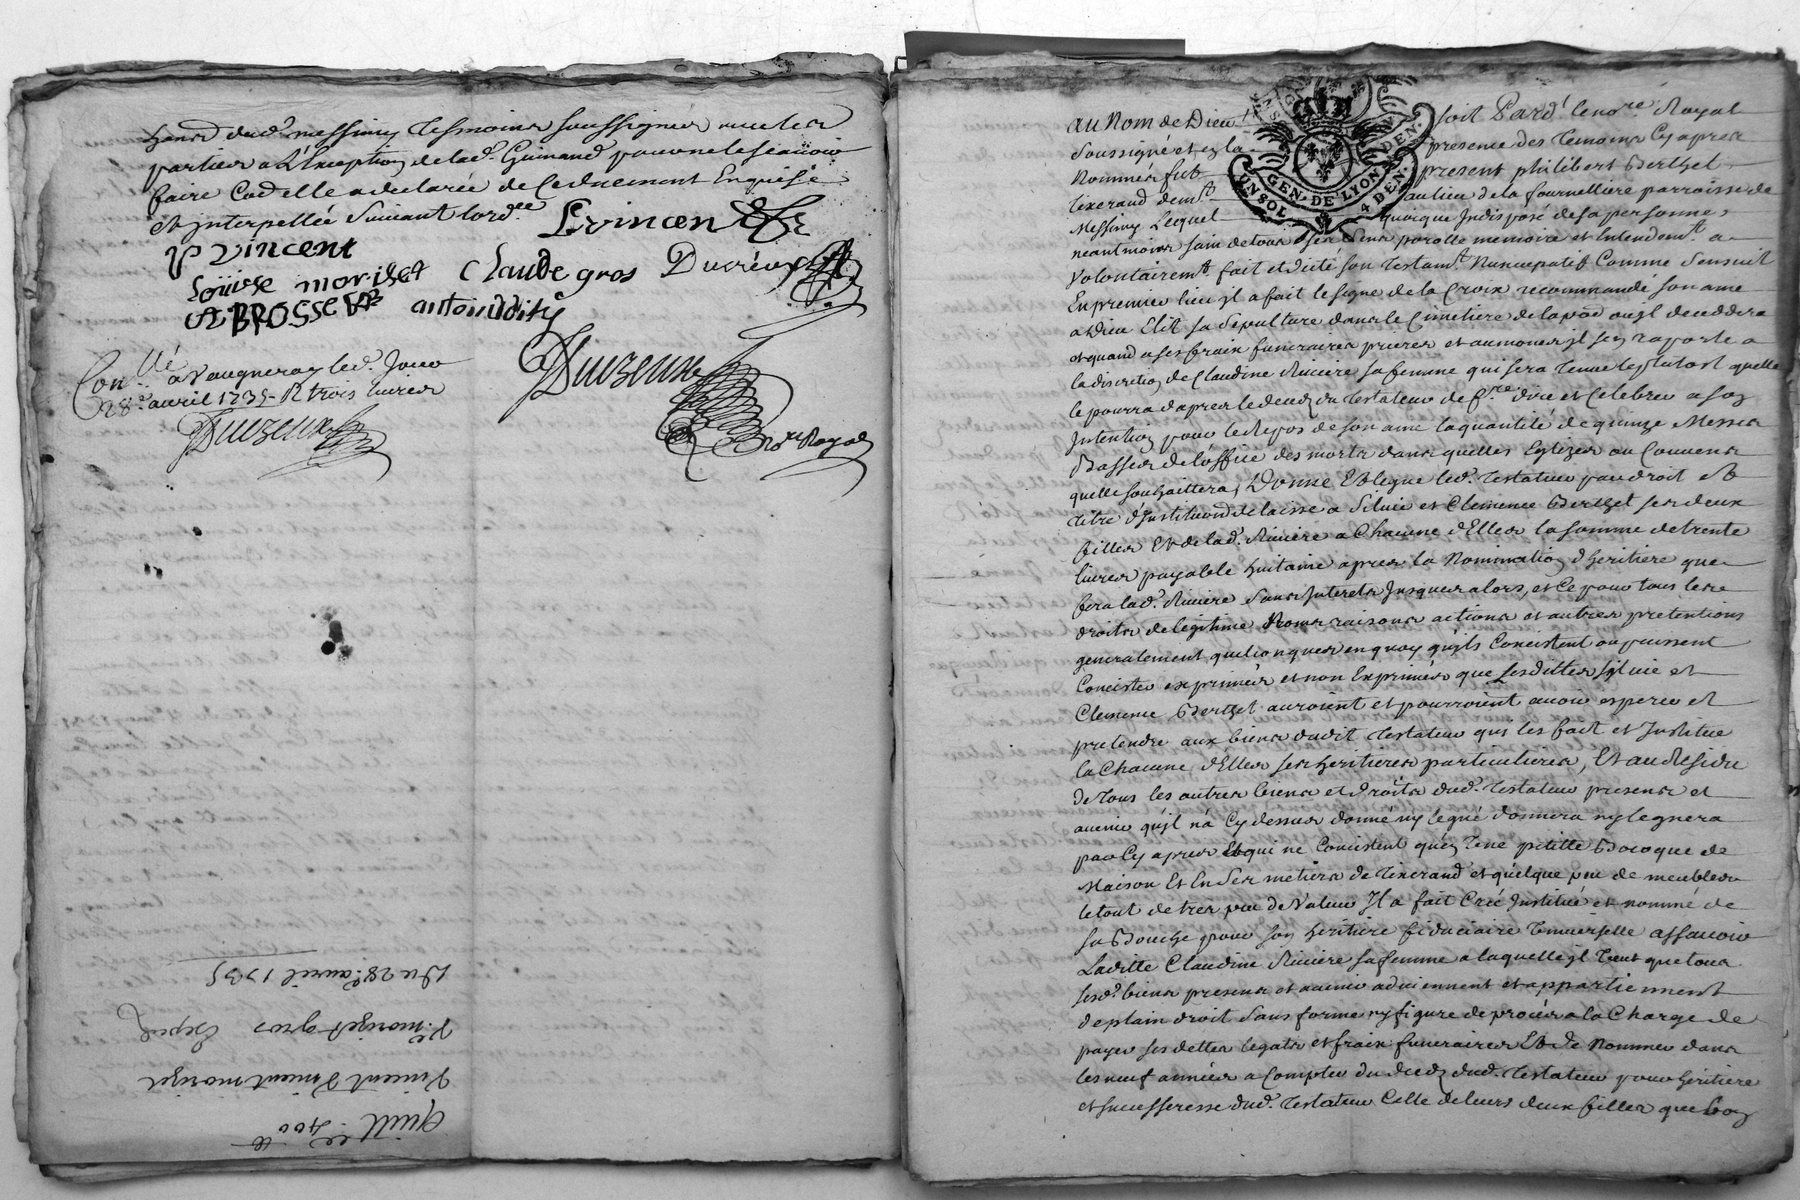 hend dud. messimy tesmoins soussignés avec les
parties a L'Exception de lad. Guinand pour ne le scavoir
faire Co d elle a declarée de Ce duement Enquise
Et interpellée Suivant lord.ee
Lvincen
p vincent
Loüise morizet Claude gros Ducreux
A BROSSE antoin
Con.llé a Vaugneray led. Jour
28e avril 1735 R trois livres
Duvzeune
Duvzeune
No.re Royal
Du 28e avril 1735
V.e morizet gros
Vincent Vincent morizet
quitt.ce 400 tt
au Nom de Dieu soit Pard.t le no.re Royal
Soussigné et en la presence des Temoins Cy apres
Nommes fut present philibert Berthet
texerand dem.t au lieu de la fournelliere parroisse de
Messimy Lequel quoique Indisposé de sa personne,
neantmoins sain de tous ses sens parolle memoire et Entendem.t a
Volontairem.t fait et dicté son testam.t Nuncupatif Comme Sensuit
En premier lieu jl a fait le signe de la Croix recommandé son ame
a Dieu Elit sa Sepulture dans le Cimetiere de la par. ou jl deceddera
et quand a ses fraix funeraires prieres et aumones jl sen raporte a
la discretion de Claudine Riviere sa femme qui sera tenue le plutost quelle
le pourra d'apres le deced du Testateur de f.re dire et Celebrer a son
Intention pour le Repos de son ame la quantité de quinze Messes
Basses de l'office des morts dans quelles Eglizes ou Couvens
quelle souhaittera, Donne Et legue led. Testateur par droit et
titre d'Institution delaisse a Silvie et Clemence Berthet ses deux
filles Et de lad. Riviere a Chacune d'Elles la somme de trente
livres payable huitaine apres la Nomination d'heritiere que
fera lad. Riviere sans Interets Jusques alors, et Ce pour tous leurs
droits de legitime Noms raisons actions et autres pretentions
generalement quelconques en quoy qu'jls Concistent ou puissent
Concister exprimés et non Exprimés que Lesdittes Silvie et
Clemence Berthet auroient et pourroient avoir esperer et
pretendre aux biens dudit Testateur qui les fait et Institue
la Chacune d'Elles ses heritieres particulieres, Et au Residu
de tous les autres biens et droits dud. Testateur presens et
avenir qu'jl n'a Cy dessus donné ny legué donnera ny leguera
par Cy apres Et qui ne Concistent qu'en Une petitte Bicoque de
Maison Et En Ses metiers de texerand et quelque peu de meubles
le tout de tres peu de Valeur Il a fait Créé Institué et nommé de
sa Bouche pour son heritiere fiduciaire Universelle assavoir
Laditte Claudine Riviere sa femme a laquelle jl veut que tous
sesd. biens presens et avenir adviennent et appartiennent
de plain droit sans forme ny figure de procés a la Charge de
payer ses dettes legats et fraix funeraires Et de Nommer dans
les neuf années a Compter du deced dud. Testateur pour heritiere
et successeresse dud. Testateur Celle de leurs deux filles que bon
GEN. DE LYON
UN SOL 4 DEN.